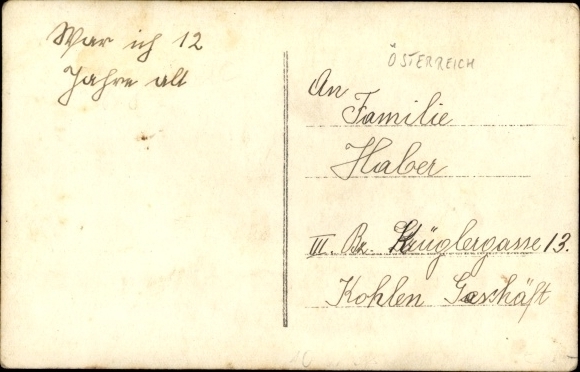 War ich 12
Jahre alt
ÖSTERREICH
An
Familie
Haber
III. Bz. Klüglergasse 13.
Kohlen Geschäft